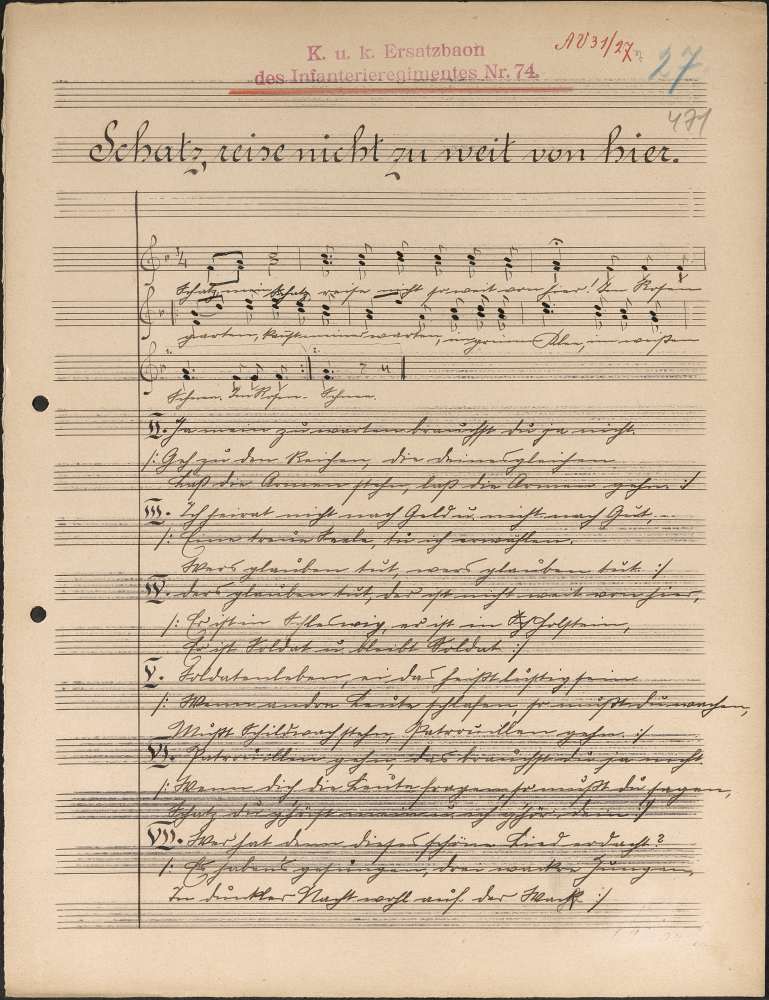 K. u. k. Ersatzbaon
des Infanterieregimentes Nr. 74.
AV 31/27
27
471
Schatz, reise nicht zu weit von hier.
Schatz, mein Schatz reise nicht so weit von hier! Im Rosen
garten, kannst meiner warten, im grünen Klee, im weißen
1. 2.
Schnee. Im Rosen- Schnee.
II. Ja mein zu warten brauchst du ja nicht.
/: Geh zu den Reichen, die deinesgleichen
Laß die Armen stehn, laß die Armen gehn :/
III. Ich heirat nicht nach Geld u. nicht nach Gut,
/: Eine treue Seele, tu ich erwählen.
Wers glauben tut, wers glauben tut :/
IV. Ders glauben tut, der ist nicht weit von hier,
/: Er ist in Schleswig, er ist in Holstein,
Er ist Soldat u. bleibt Soldat :/
V. Soldatenleben, ei das heißt lustig sein
/: Wenn andre Leute schlafen, so mußt du wachen,
Mußt Schildwach stehn, Patrouillen gehn :/
VI. Patrouillen gehn, das brauchst du ja nicht.
/: Wenn dich die Leute fragen so mußt du sagen,
Schatz du ghörst mein u. ich ghör dein :/
VII. Wer hat denn dieses schöne Lied erdacht?
/: Es habens gesungen, drei wackre Jungen,
In dunkler Nacht wohl auf der Wacht :/